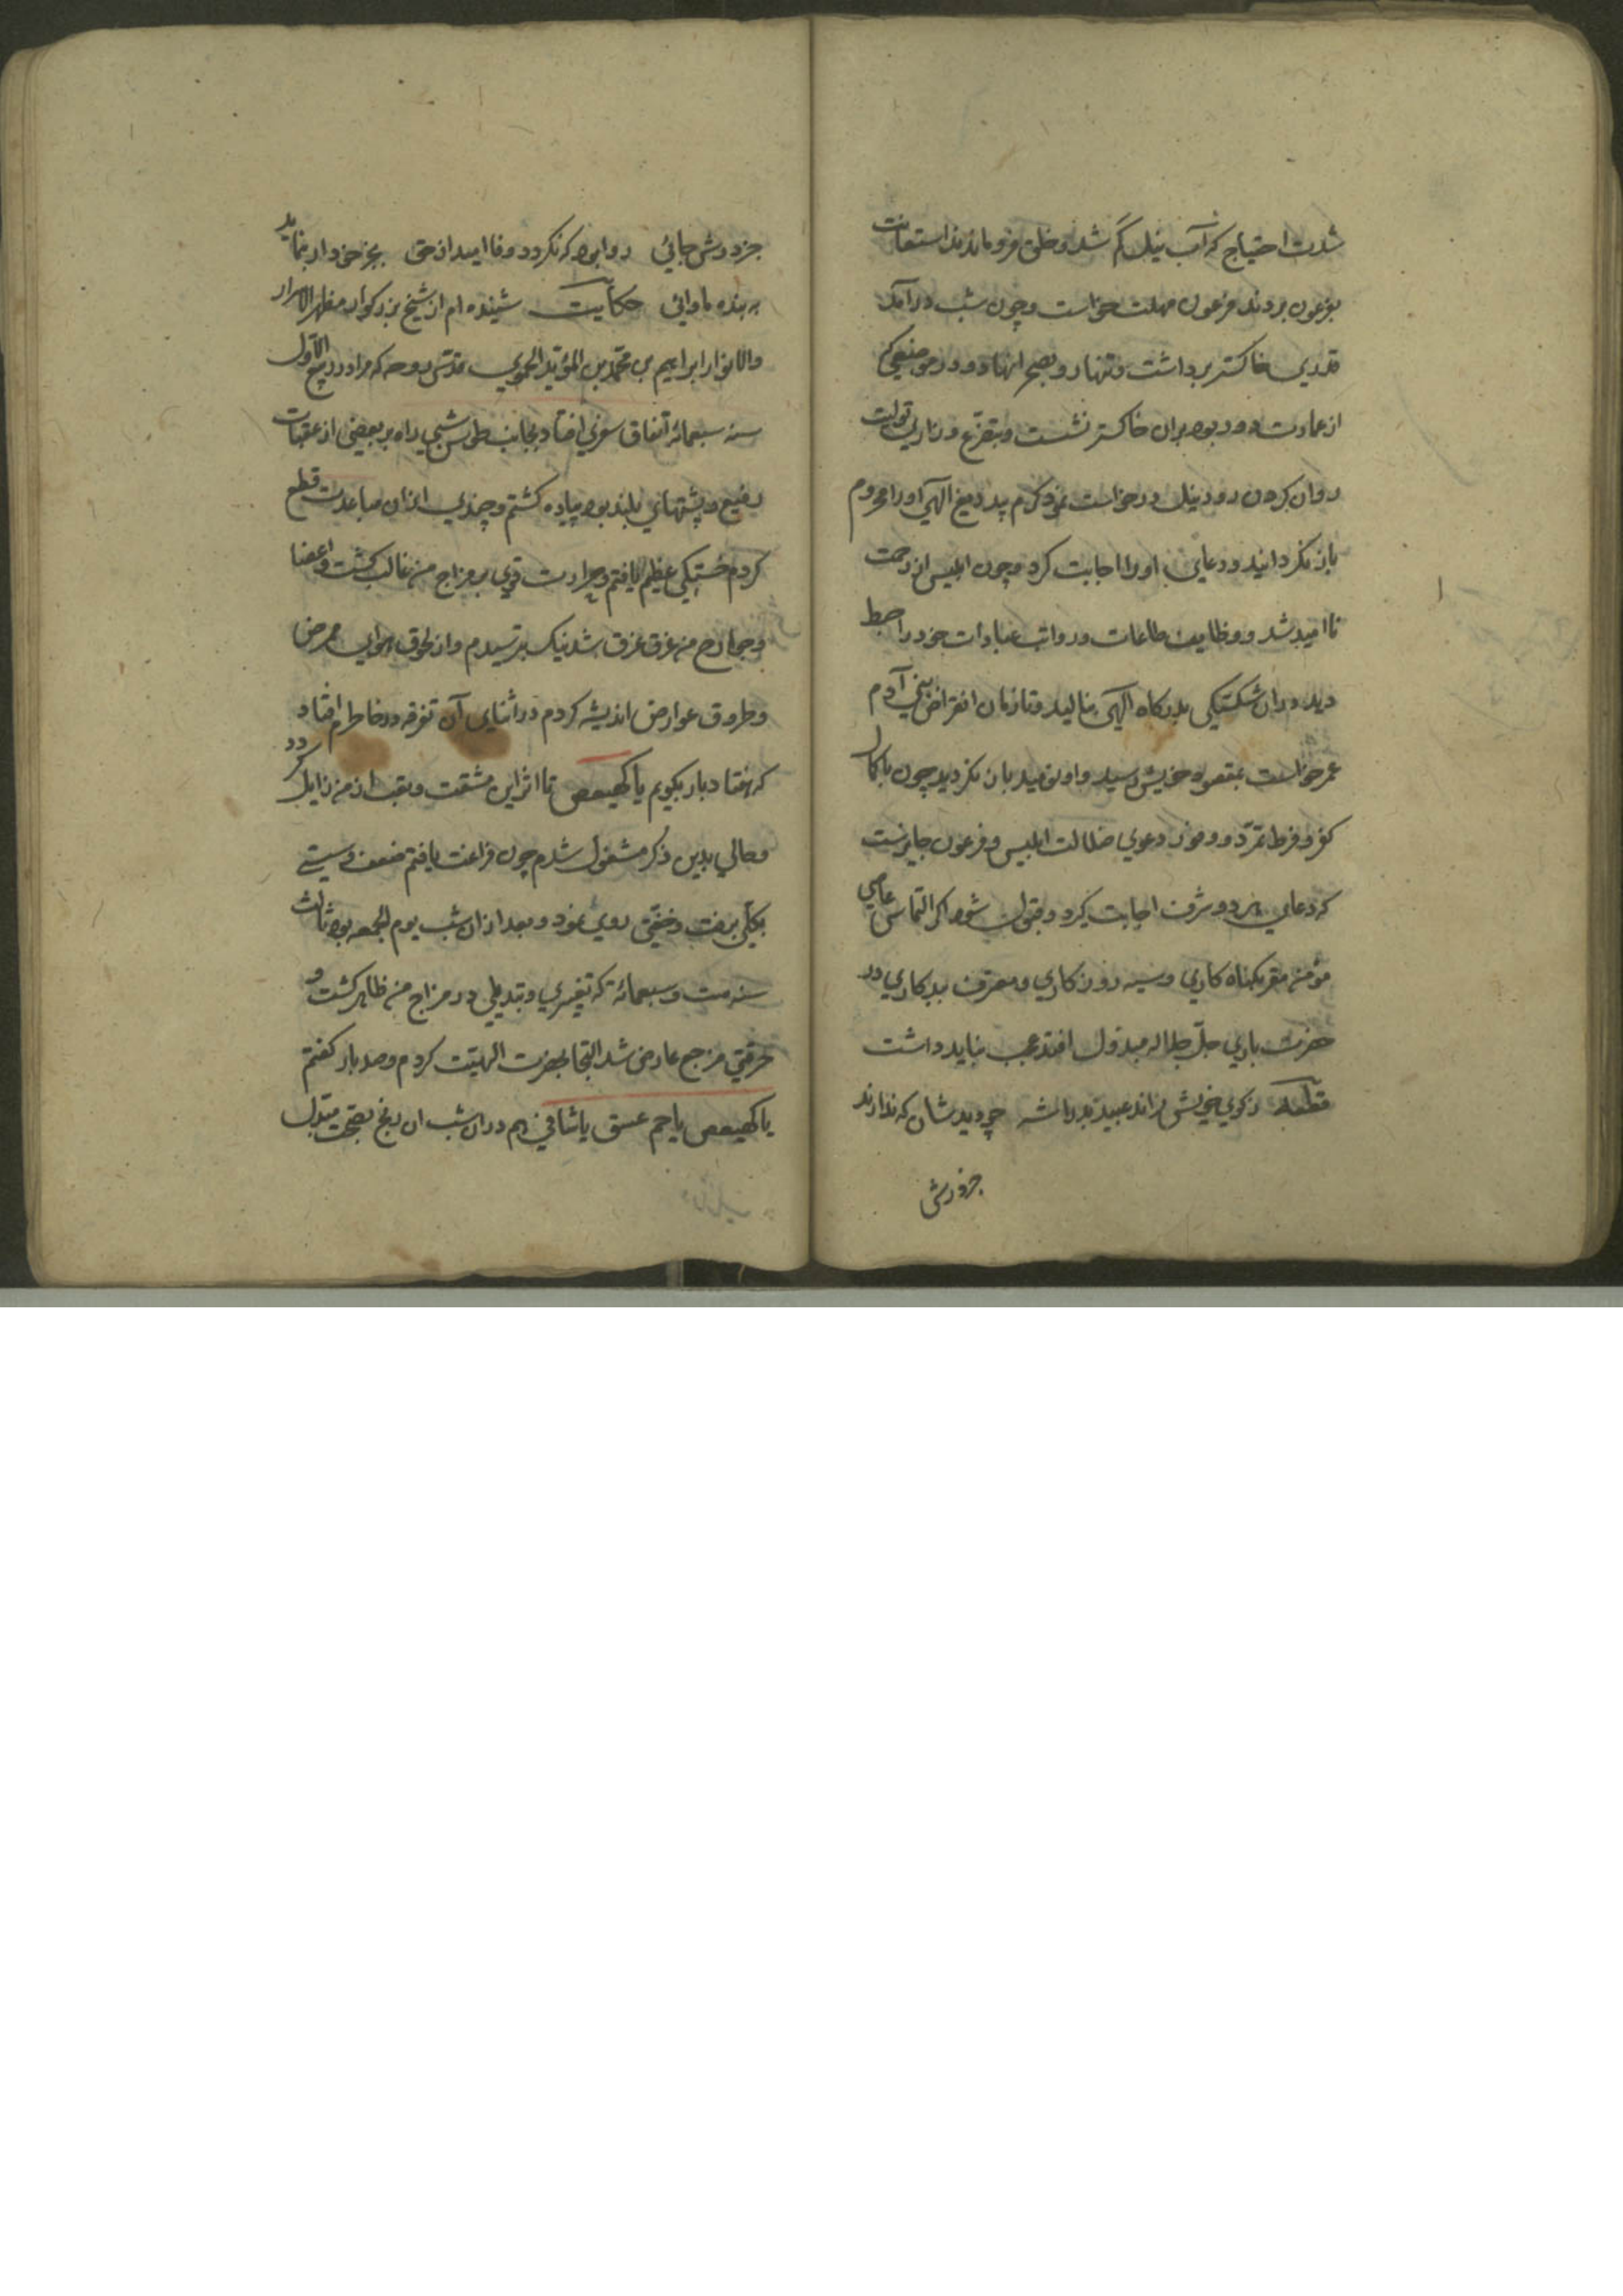 شدت احتیاج که آب نیل کم شد و خلق فرو ماندند استعانت
بفرعون بردند فرعون مهلت خواست و چون شب درآمد
قدری خاکستر برداشت و تنها رو بصحرا نهاد و در موضعی که
از عمارت دور بود بران خاکستر نشست و بتضرع و زاری
روان کردن رود نیل درخواست نمود کرم بی دریغ الهی اورا محروم
باز نکردانید و دعای اورا اجابت کرد و چون ابلیس از رحمت
ناامید شد و وظایف طاعات و رواتب عبادات خود را حبط
دید دران شکستگی بدرکاه الهی بنالید و تا زمان انقراض بنی آدم
عمر خواست بمقصود خویش رسید و او نومید باز نکردید چون با کمال
کفر و فرط تمرد و دعوی ضلالت ابلیس و فرعون جایزست
که دعای هر دو شرف اجابت گیرد و قبول شود اکر التماس عاصی
مؤمن مقر بکناه کاری و سیه روز کاری و معترف ببدکاری در
حضرت باری جل جلاله مبذول افتد عجب نباید داشت
قطعه ز کوی خویش نراند عبید بد را شه چو دید شان که ندارند
جزدرش
جز درش جائی روا بود که نکردد وفا امید از حق بجز خود ار بنماید
به بنده ماوائی حکایت شنیده ام از شیخ بزرکوار مظهر الاسرار
والانوار ابراهیم بن محمد بن المؤید الحموی قدس روحه که مرا در ربیع الاول
سنه سبعمائه اتفاق سفری افتاد بجانب طوس شبی راه بر بعضی از عقبات
رفیع و پشتهای بلند بود پیاده کشتم و چندی ازان مباعدت قطع
کردم خستکی عظیم یافتم و حرارت قوی بر مزاج من غالب کشت و اعضا
و جوارح من غرق عرق شد نیک بترسیدم و از لحوق هوای ممرض
و طروق عوارض اندیشه کردم در اثنای آن تفرقه در خاطرم افتاد
که هفتاد بار بکویم یا کهیعص تا اثر این مشقت و تعب از من زایل کردد
و حالی بدین ذکر مشغول شدم چون فراغت یافتم ضعف و سستی
بکلی برفت و خفتی روی نمود و بعد ازان شب یوم الجمعه بود ثالث
سنه ست و سبعمائه که تغییری و تبدیلی در مزاج من ظاهر کشت و
حرقتی مزعج عارض شد التجا بحضرت الهیت کردم و صد بار کفتم
یا کهیعص یا حم عسق یا شافی هم دران شب ان رنج بصحت مبدل